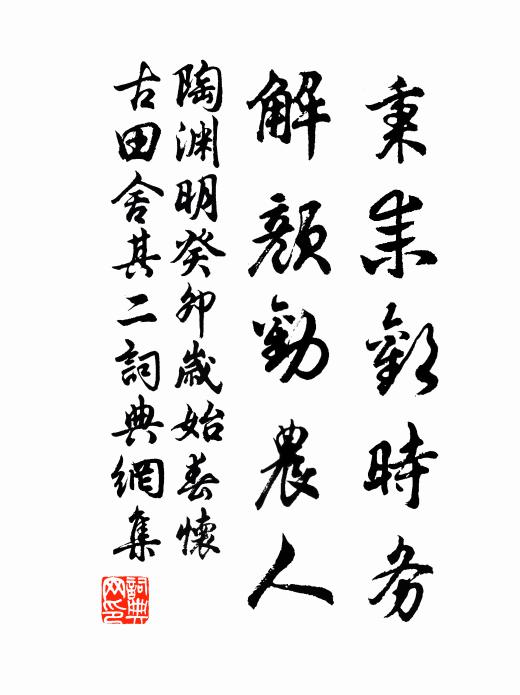 秉耒歡時务
解顏勸農人
陶渊明癸卯歲始春懷
古田舍其二詞典網集
詞典网印